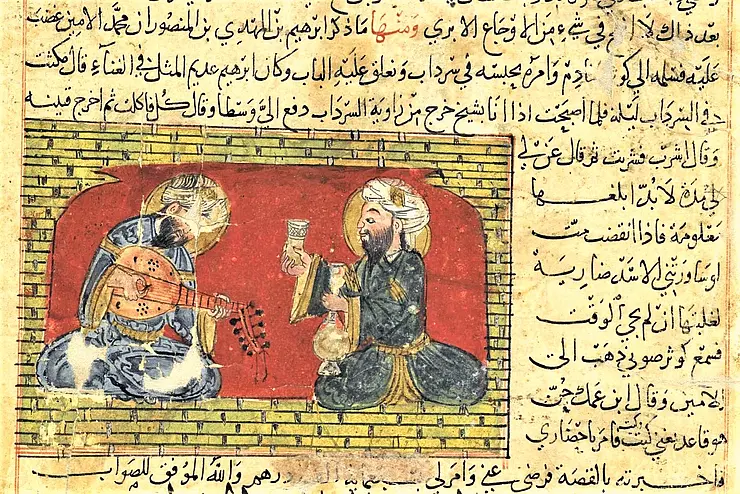 بعد ذلك لا انفع في شيء من الاوجاع الا بري ومنها ما ذكر ابرهيم بن المهدي بن المنصور ان محمد الامين غضب
عليه فسلمه الى كوثر خادم وامره بحبسه في سرداب وتغلق عليه الباب وكان ابرهيم عديم المثل في الغناء قال مكثت
في السرداب ليلة فلما اصبحت اذا انا بشيخ خرج من زاوية السرداب دفع الي وسطا وقال كل فاكلت ثم اخرج قنينة
وقال اشرب فشربت ثم قال غن لي
لي مدة لا بد ابلغها
معلومة فاذا انقضت مت
لو ساورتني الاسد ضارية
لغلبتها ان لم يجي الوقت
فسمع كوثر صوتي ذهب الى
الامين وقال ابن عمك جن
هو قاعد يغني كيت وكيت فامر باحضاري
واخبرته بالقصة فرضي عني وامر لي درهم والله الموفق للصواب